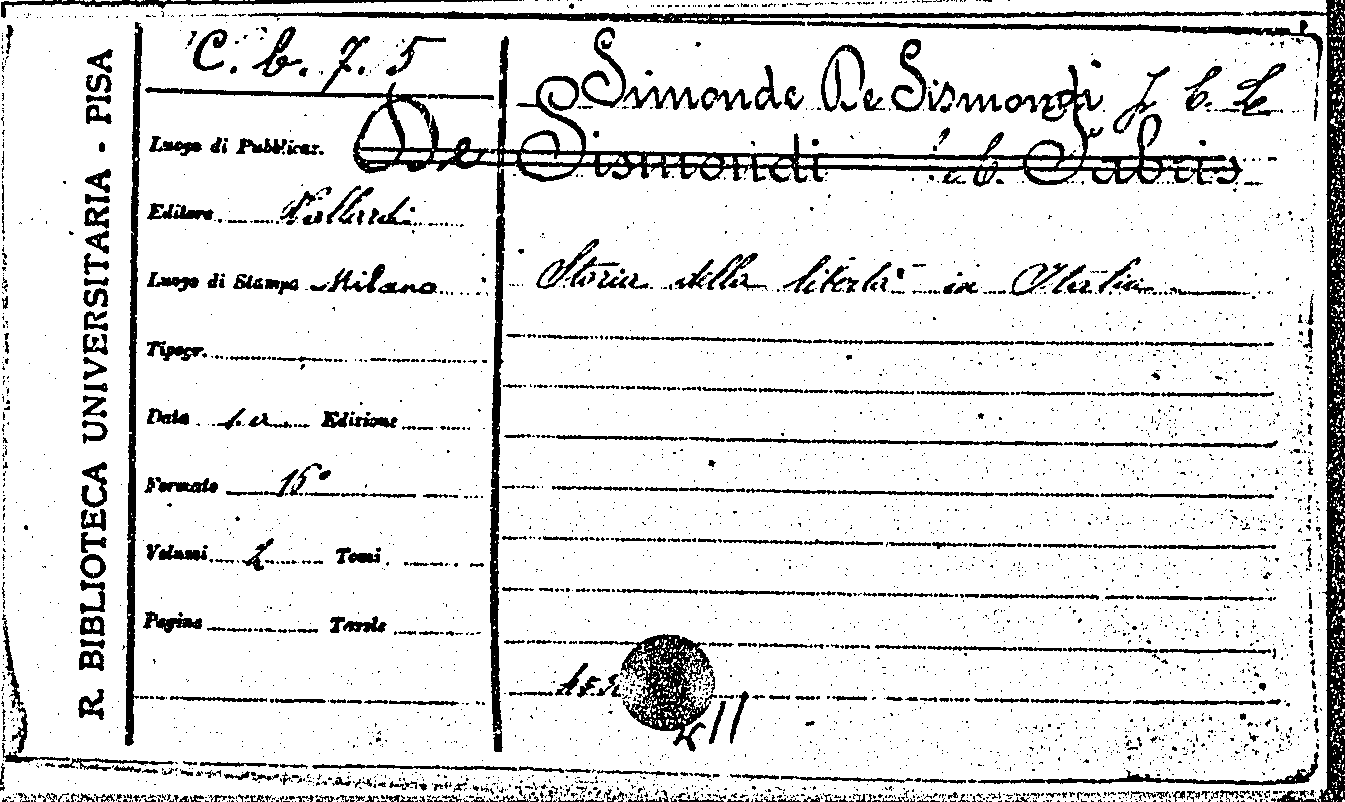 R. BIBLIOTECA UNIVERSITARIA - PISA
C. b. 7. 5
Luogo di Pubblicaz.
Editore Vallardi
Luogo di Stampa Milano
Tipogr.
Data s. a. Edizione
Formato 16°
Volumi 2 Tomi
Pagine Tavole
Simonde De Sismondi J. C. L.
De Sismondi Fabris
Storia della libertà in Italia